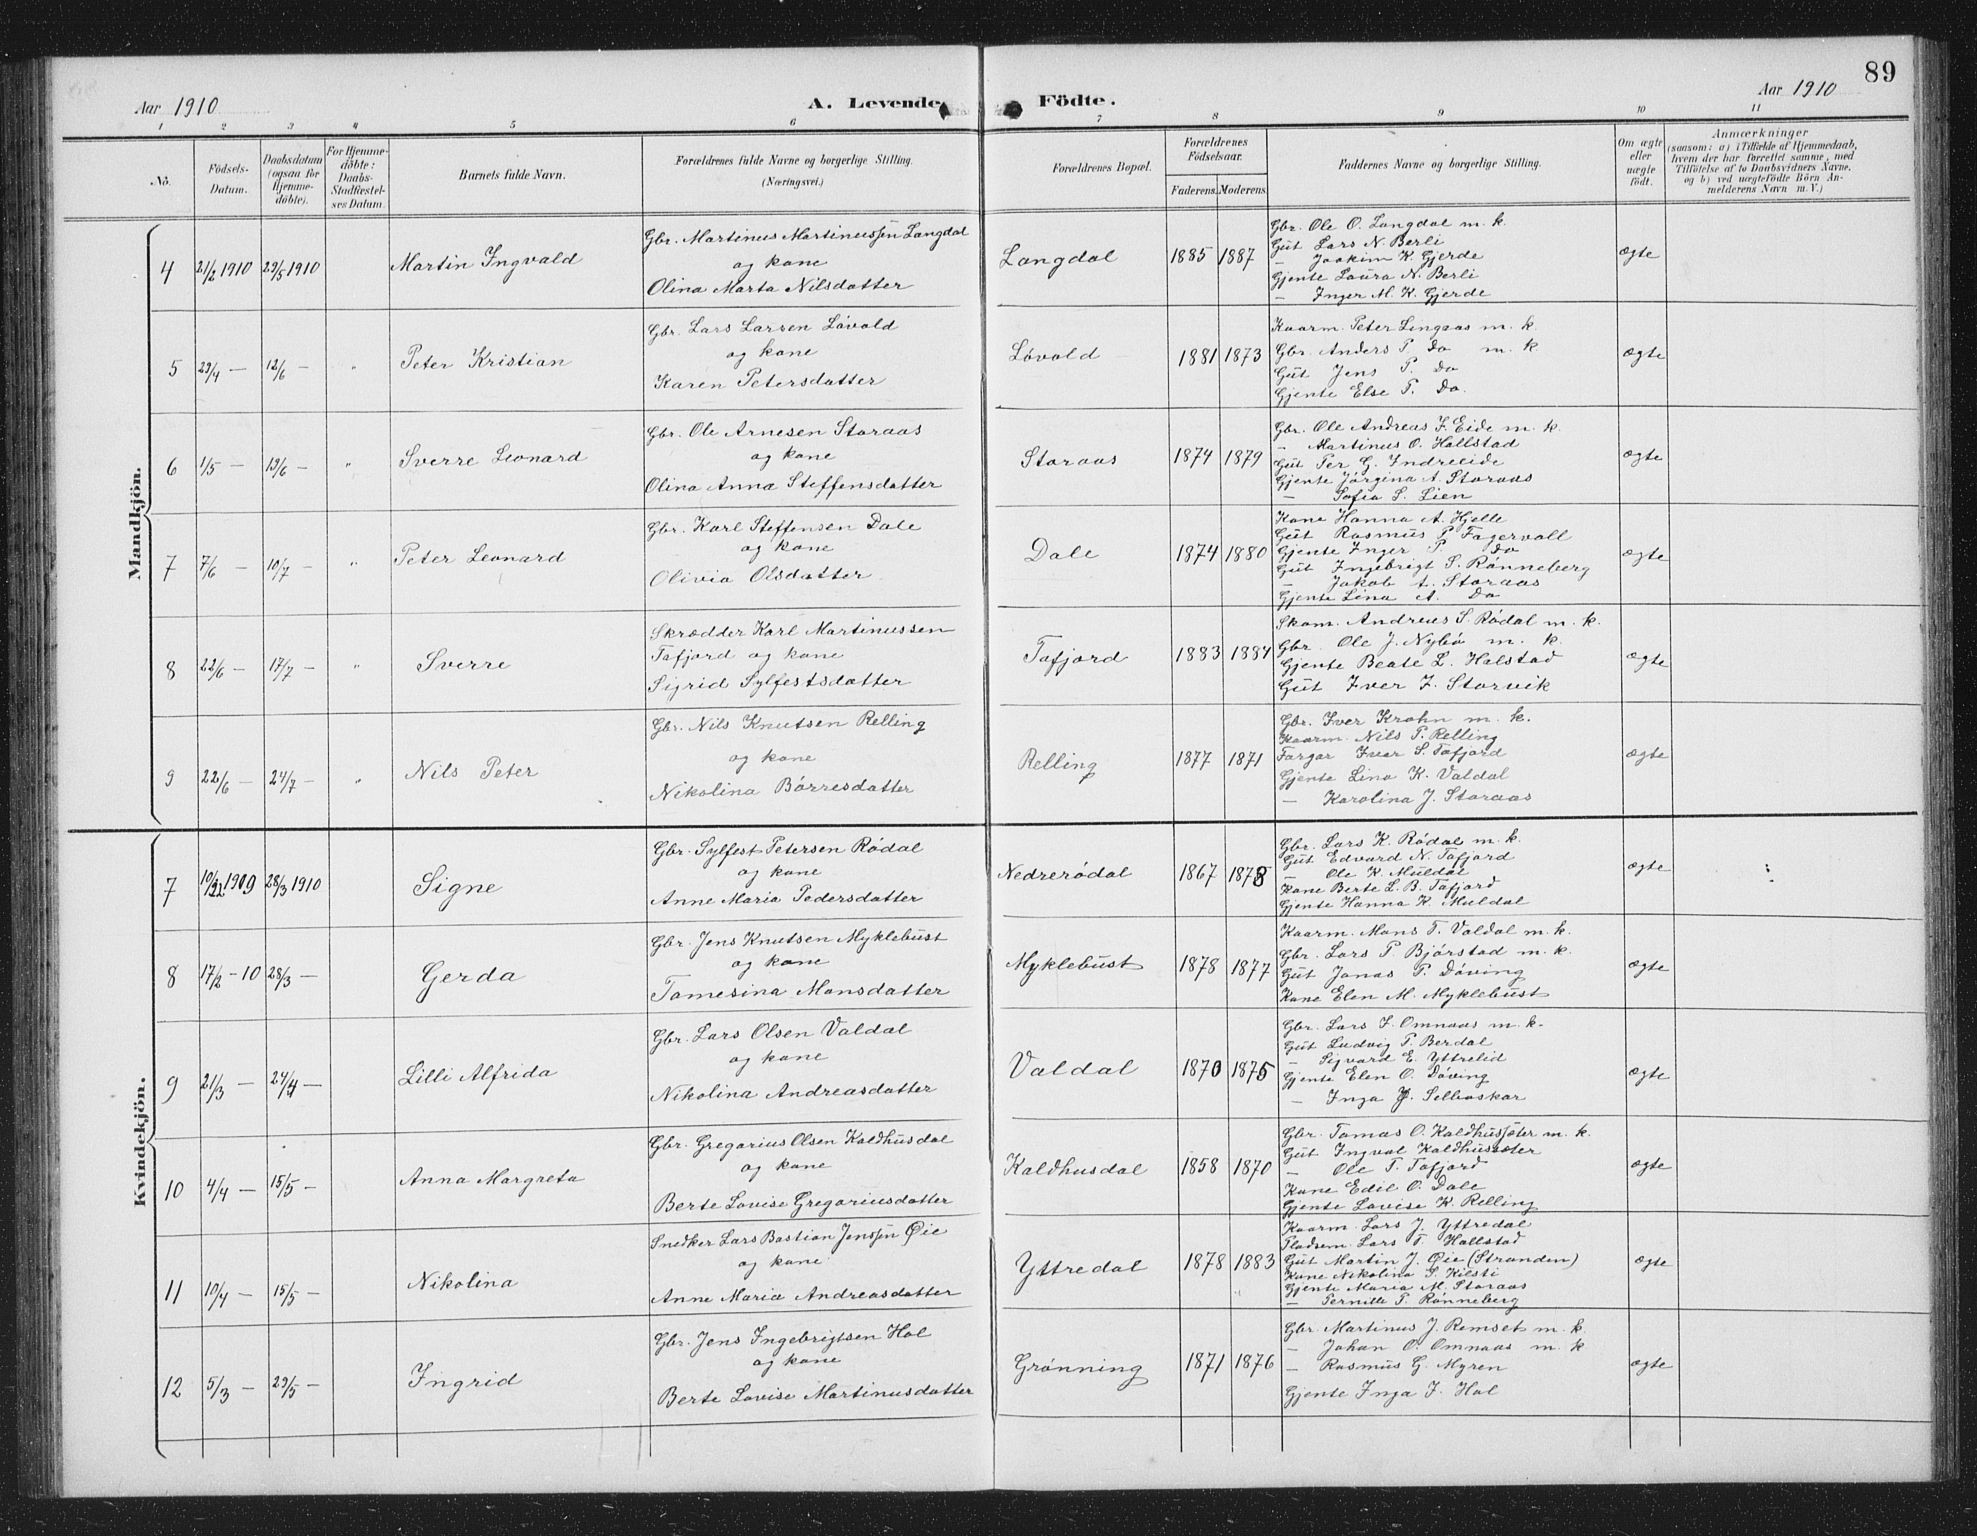 89
Aar 1910
A. Levende Födte.
Aar 1910
1 2 3 4 5 6 7 8 9 10 11
No.
Födsels-Datum.
Daabsdatum (ogsaa for Hjemmedöbte).
For Hjemmedöbte: Daabs-Stadfæstelses Datum.
Barnets fulde Navn.
Forældrenes fulde Navne og borgerlige Stilling. (Næringsvei.)
Forældrenes Bopæl.
Forældrenes Födselsaar.
Faderens. Moderens.
Faddernes Navne og borgerlige Stilling.
Om ægte eller uægte födt.
Anmærkninger
(saasom: a) i Tilfælde af Hjemmedaab, hvem der har forrettet samme, med Tilföielse af to Daabsvidners Navne, og b) ved uægtefödte Börn Anmelderens Navn m. V.)
Mandkjön.
4 21/2 1910 29/5 1910
Martin Ingvald
Gbr. Martinus Martinussen Langdal
og kone
Olina Marta Nilsdatter
Langdal
1885 1887
Gbr. Ole O. Langdal m. k.
Gut Lars N. Berli
— Joakim K. Gjerde
Gjente Laura N. Berli
— Inger M. K. Gjerde
ægte
5 29/4 — 12/6 — "
Peter Kristian
Gbr. Lars Larsen Løvold
og kone
Karen Petersdatter
Løvold
1881 1873
Kaarm. Peter Lingaas m. k.
Gbr. Anders P. Do m. k
Gut Jens P. Do
Gjente Else P. Do.
ægte
6 1/5 — 19/6 — "
Sverre Leonard
Gbr. Ole Arnesen Storaas
og kone
Olina Anna Steffensdatter
Storaas
1874 1879
Gbr. Ole Andreas I. Eide m. k.
— Martinus O. Hallstad
Gut Per G. Indreeide
Gjente Jørgina A. Storaas
— Sofia S. Lien
ægte
7 7/6 — 10/7 — "
Peter Leonard
Gbr. Karl Steffensen Dale
og kone
Olivia Olsdatter
Dale
1874 1880
Kone Hanna A. Hjelle
Gut Rasmus P. Fagervoll
Gjente Inger P. Do
Gut Ingebrigt S. Rønneberg
— Jakob A. Storaas
Gjente Lina A. Do
ægte
8 22/6 — 17/7 — "
Sverre
Skrædder Karl Martinussen
Tafjord og kone
Sigrid Sylfestsdatter
Tafjord
1883 1884
Skom. Andreas S. Rødal m. k.
Gbr. Ole J. Nybø m. k.
Gjente Beate L. Halstad
Gut Iver I. Storvik
ægte
9 22/6 — 24/7 — "
Nils Peter
Gbr. Nils Knutsen Relling
og kone
Nikolina Børresdatter
Relling
1877 1871
Gbr. Iver Krohn m. k.
Kaarm. Nils P. Relling
Farger Iver S. Tafjord
Gjente Lina K. Valdal
— Karolina J. Storaas
ægte
Kvindekjön.
7 1909 28/3 1910
Signe
Gbr. Sylfest Petersen Rødal
og kone
Anne Maria Pedersdatter
Nedrerødal
1867 1873
Gbr. Lars K. Rødal m. k.
Gut Edvard N. Tafjord
— Ole K. Muldal
Kone Berte L. B. Tafjord
Gjente Hanna K. Muldal
ægte
8 17/2 — 10 28/3 —
Gerda
Gbr. Jens Knutsen Myklebust
og kone
Tomesina Monsdatter
Myklebust
1878 1877
Kaarm. Mons T. Valdal m. k.
Gbr. Lars P. Bjørstad m. k.
Gut Jonas P. Døving
Kone Elen M. Myklebust
ægte
9 21/3 — 24/4 —
Lilli Alfrida
Gbr. Lars Olsen Valdal
og kone
Nikolina Andreasdatter
Valdal
1870 1875
Gbr. Lars I. Omnaas m. k.
Gut Ludvig P. Berdal
— Sigvard E. Yttrelid
Gjente Elen O. Døving
— Inga J. Selboskar
ægte
10 4/4 — 15/5 —
Anna Margreta
Gbr. Gregorius Olsen Kaldhusdal
og kone
Berte Lovise Gregoriusdatter
Kaldhusdal
1858 1870
Gbr. Tomas O. Kaldhussæter m. k.
Gut Ingval Kaldhussæter
— Ole T. Tafjord
Kone Edil O. Dale
Gjente Lovise K. Relling
ægte
11 10/4 — 15/5 —
Nikolina
Snedker Lars Bastian Jenssen Øie
og kone
Anne Maria Andreasdatter
Yttredal
1878 1883
Kaarm. Lars J. Yttredal
Pladsem. Lars T. Hallstad
Gut Martin J. Øie (Stranden)
Kone Nikolina S. Kilsti
Gjente Maria M. Storaas
— Pernille P. Rønneberg
ægte
12 5/3 — 29/5 —
Ingrid
Gbr. Jens Ingebrigtsen Hol
og kone
Berte Lovise Martinusdatter
Grønning
1871 1876
Gbr. Martinus J. Remset m. k.
— Johan O. Omnaas m. k
— Rasmus G. Myren
Gjente Inga I. Hol
ægte